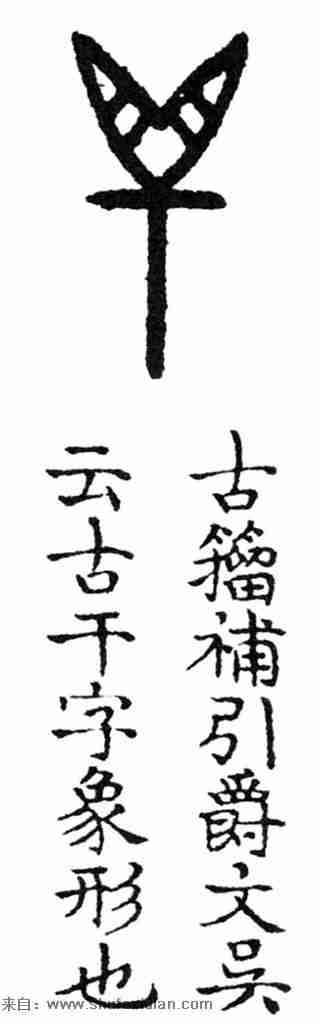 古籀補引爵文吴
云古干字象形也
来自：www.shufazidian.com